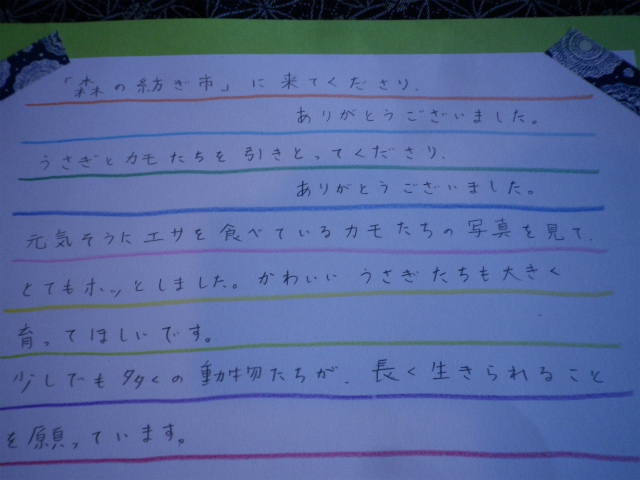 「森の紡ぎ市」に来てくださり、
ありがとうございました。
うさぎとカモたちを引きとってくださり、
ありがとうございました。
元気そうにエサを食べているカモたちの写真を見て、
とてもホッとしました。かわいい うさぎたちも大きく
育ってほしいです。
少しでも多くの動物たちが、長く生きられること
を願っています。